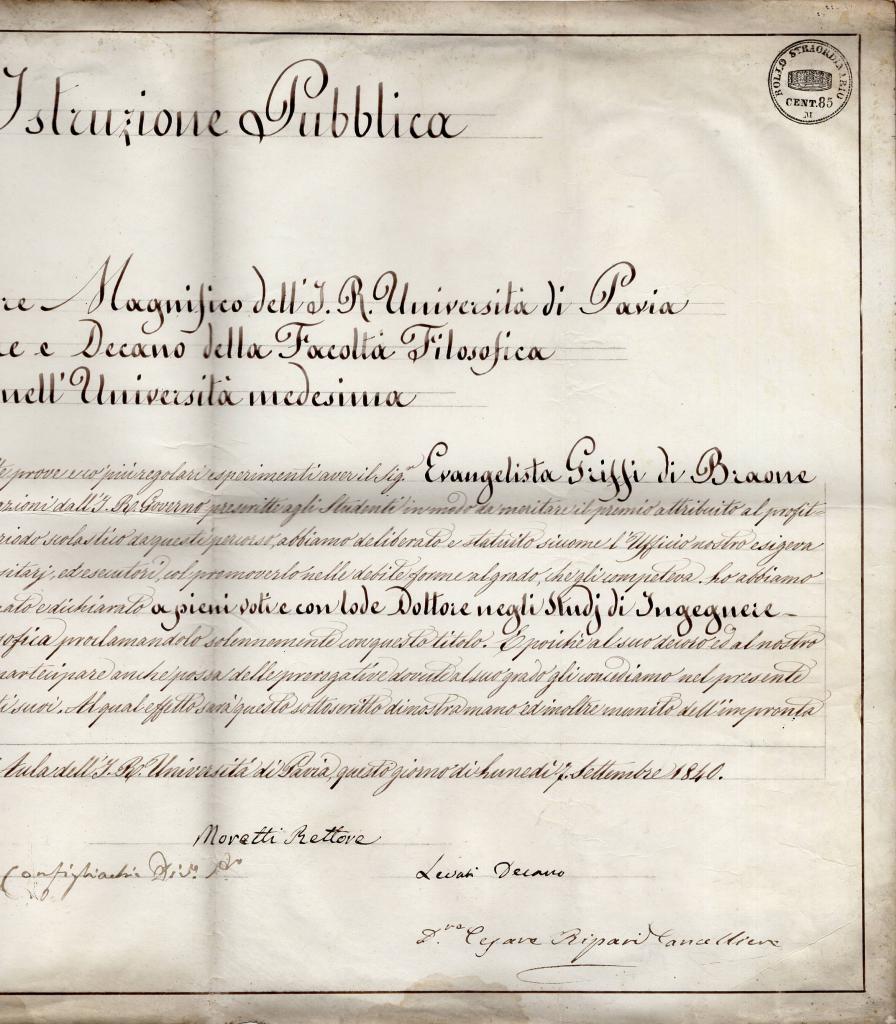 Istruzione Pubblica
BOLLO STRAORDINARIO
CENT. 85
M
re Magnifico dell'I. R. Università di Pavia
re e Decano della Facoltà Filosofica
nell'Università medesima
prove e co' più regolari esperimenti aver il Sig.r Evangelista Griffi di Braone
azioni dall'I. R. Governo prescritte agli Studenti in modo da meritare il premio attribuito al profit=
riodo scolastico da questi percorso, abbiamo deliberato e statuito siccome l'Ufficio nostro esigeva
sitarj, ed esecutori, col promoverlo nelle debite forme al grado, che gli competeva. ho abbiamo
ato e dichiarato a pieni voti e con lode Dottore negli Studj di Ingegnere
sofica proclamandolo solennemente con questo titolo. E poichè al suo decoro ed al nostro
partecipare anche possa delle prerogative dovute al suo grado gli concediamo nel presente
ti suoi. Al qual effetto sarà questo sottoscritto di nostra mano ed inoltre munito dell'impronta
Aula dell'I. R. Università di Pavia, questo giorno di Lunedì 7. Settembre 1840.
Moretti Rettore
Configliachi
Levati Decano
D.re Cesare Ripari Cancelliere